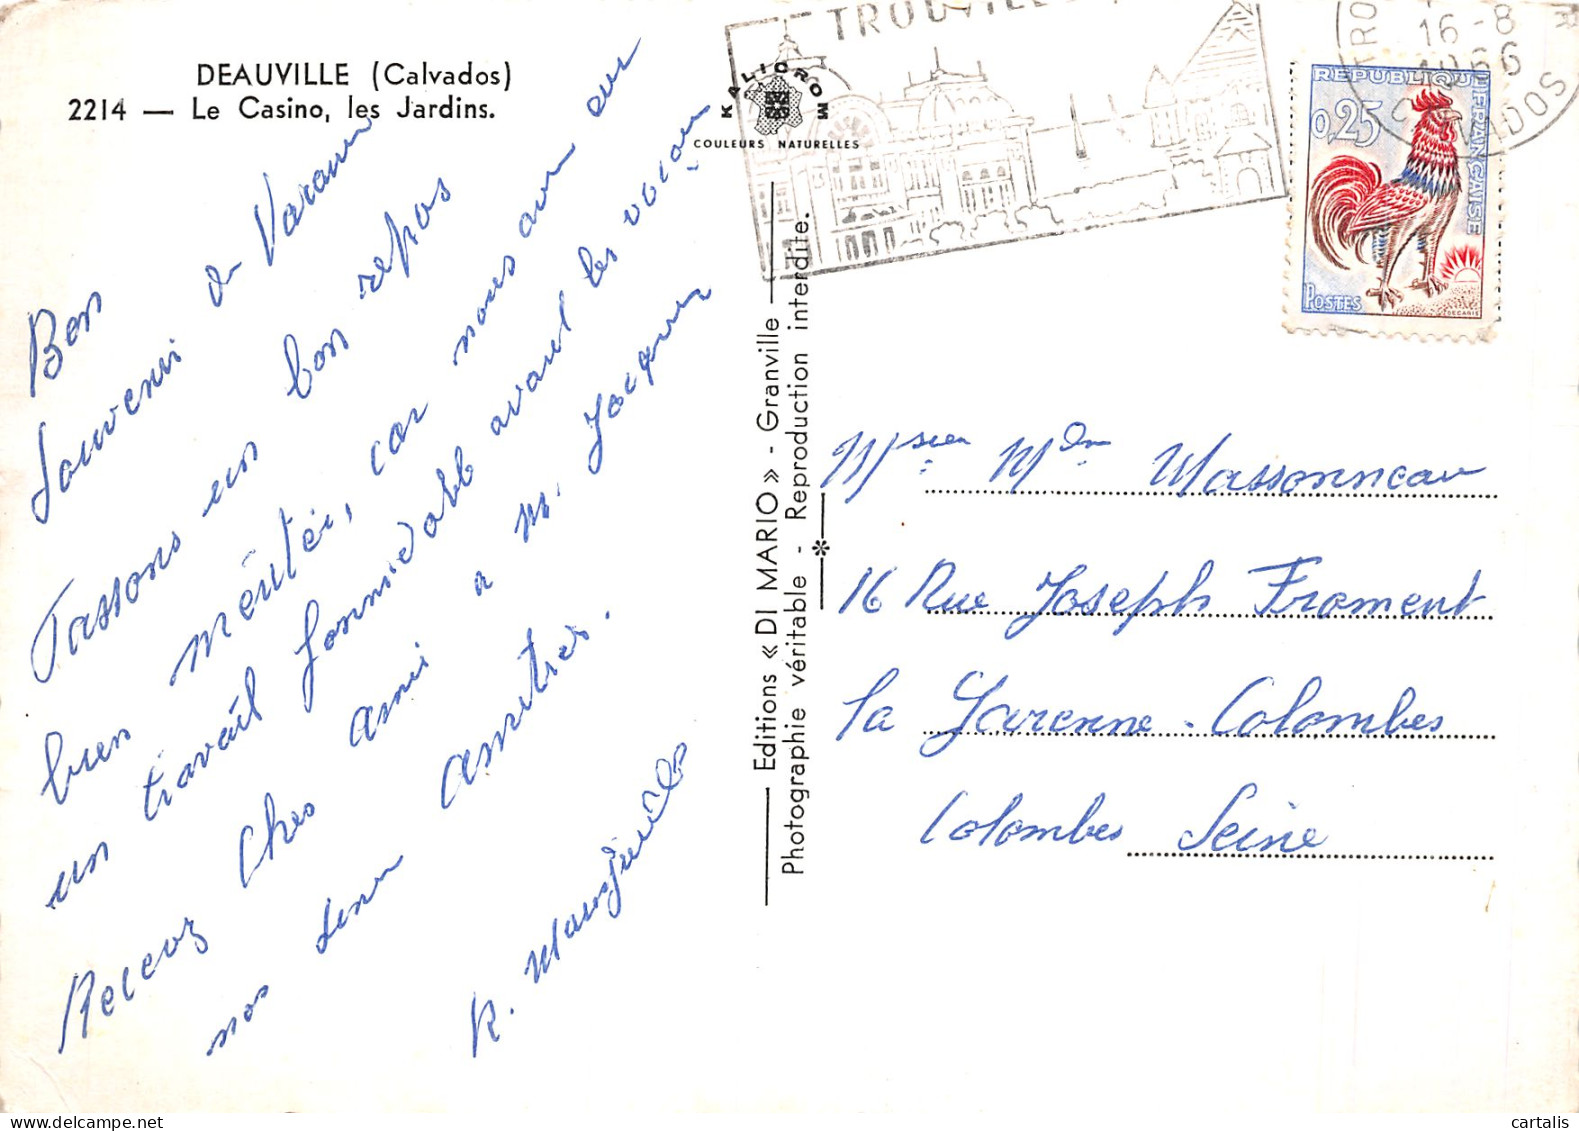 DEAUVILLE (Calvados)
2214 — Le Casino, les Jardins.
Bon
Souvenir de
Passons un bon repos
bien méritéi, car nous avon eu
un travail formidable avant les
Recevoz Ches ami a M. Jacques
nos amitiés.
R.
KALICROM
COULEURS NATURELLES
Editions « DI MARIO » - Granville
Photographie véritable - Reproduction interdite.
TROUVILLE
16-8
1966
CALVADOS
REPUBLIQUE FRANÇAISE
0,25
POSTES
DECARIS
Msieu Mdm Massonneau
16 Rue Joseph Froment
la Garenne-Colombes
Colombes Seine
cartalis
delcampe.net